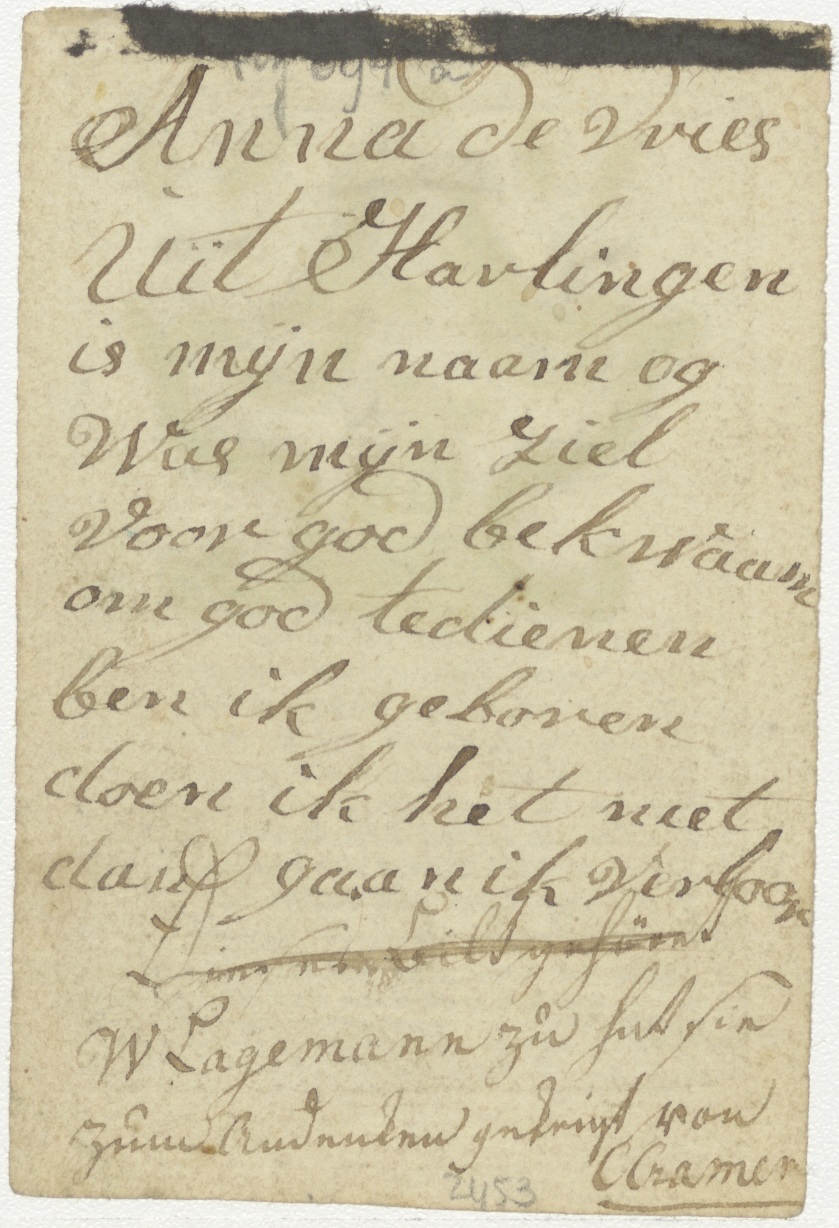 Anna de Vries
Uit Harlingen
is mijn naam og
Was mijn ziel
Voor god bekwaam
om god tedienen
ben ik geboren
doen ik het niet
dan gaan ik verloor
Dieses Bild gehöret
W Lagemann zu hat sie
zum Andenken gekrigt von
C Cramer
2453